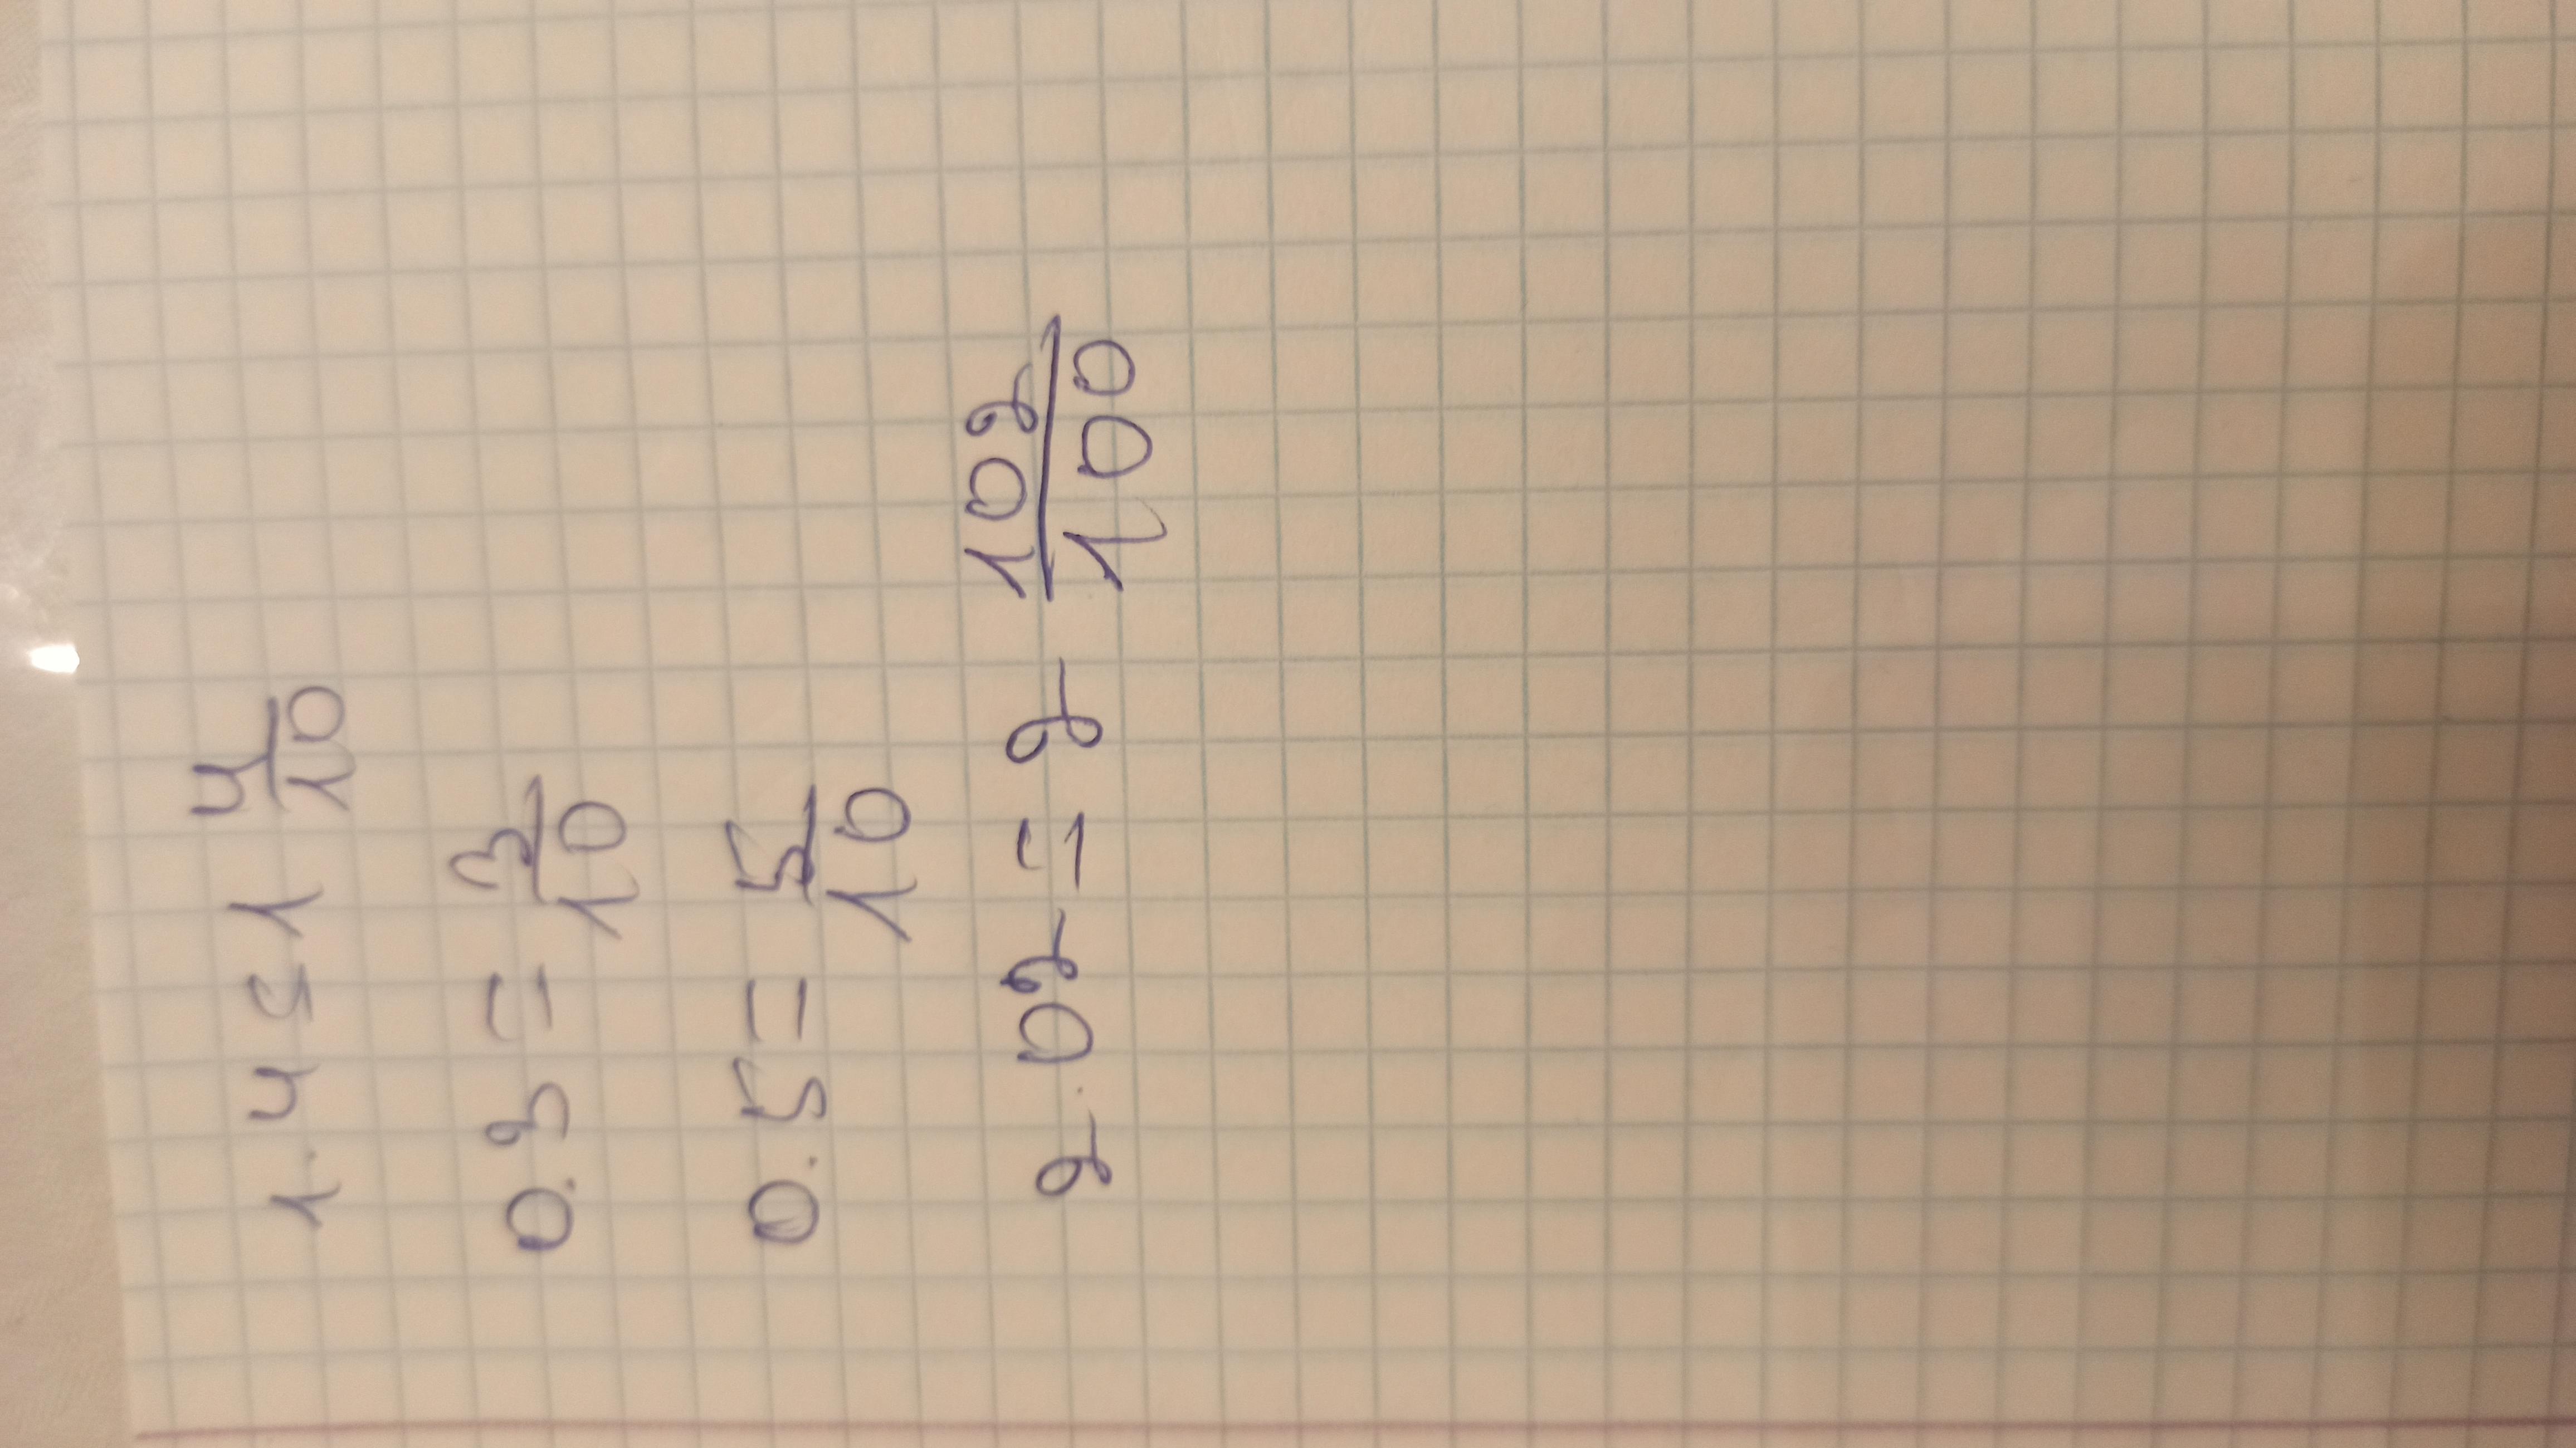 1.4 = 1 4/10
0.3 = 3/10
0.5 = 5/10
2.02 = 2 102/100